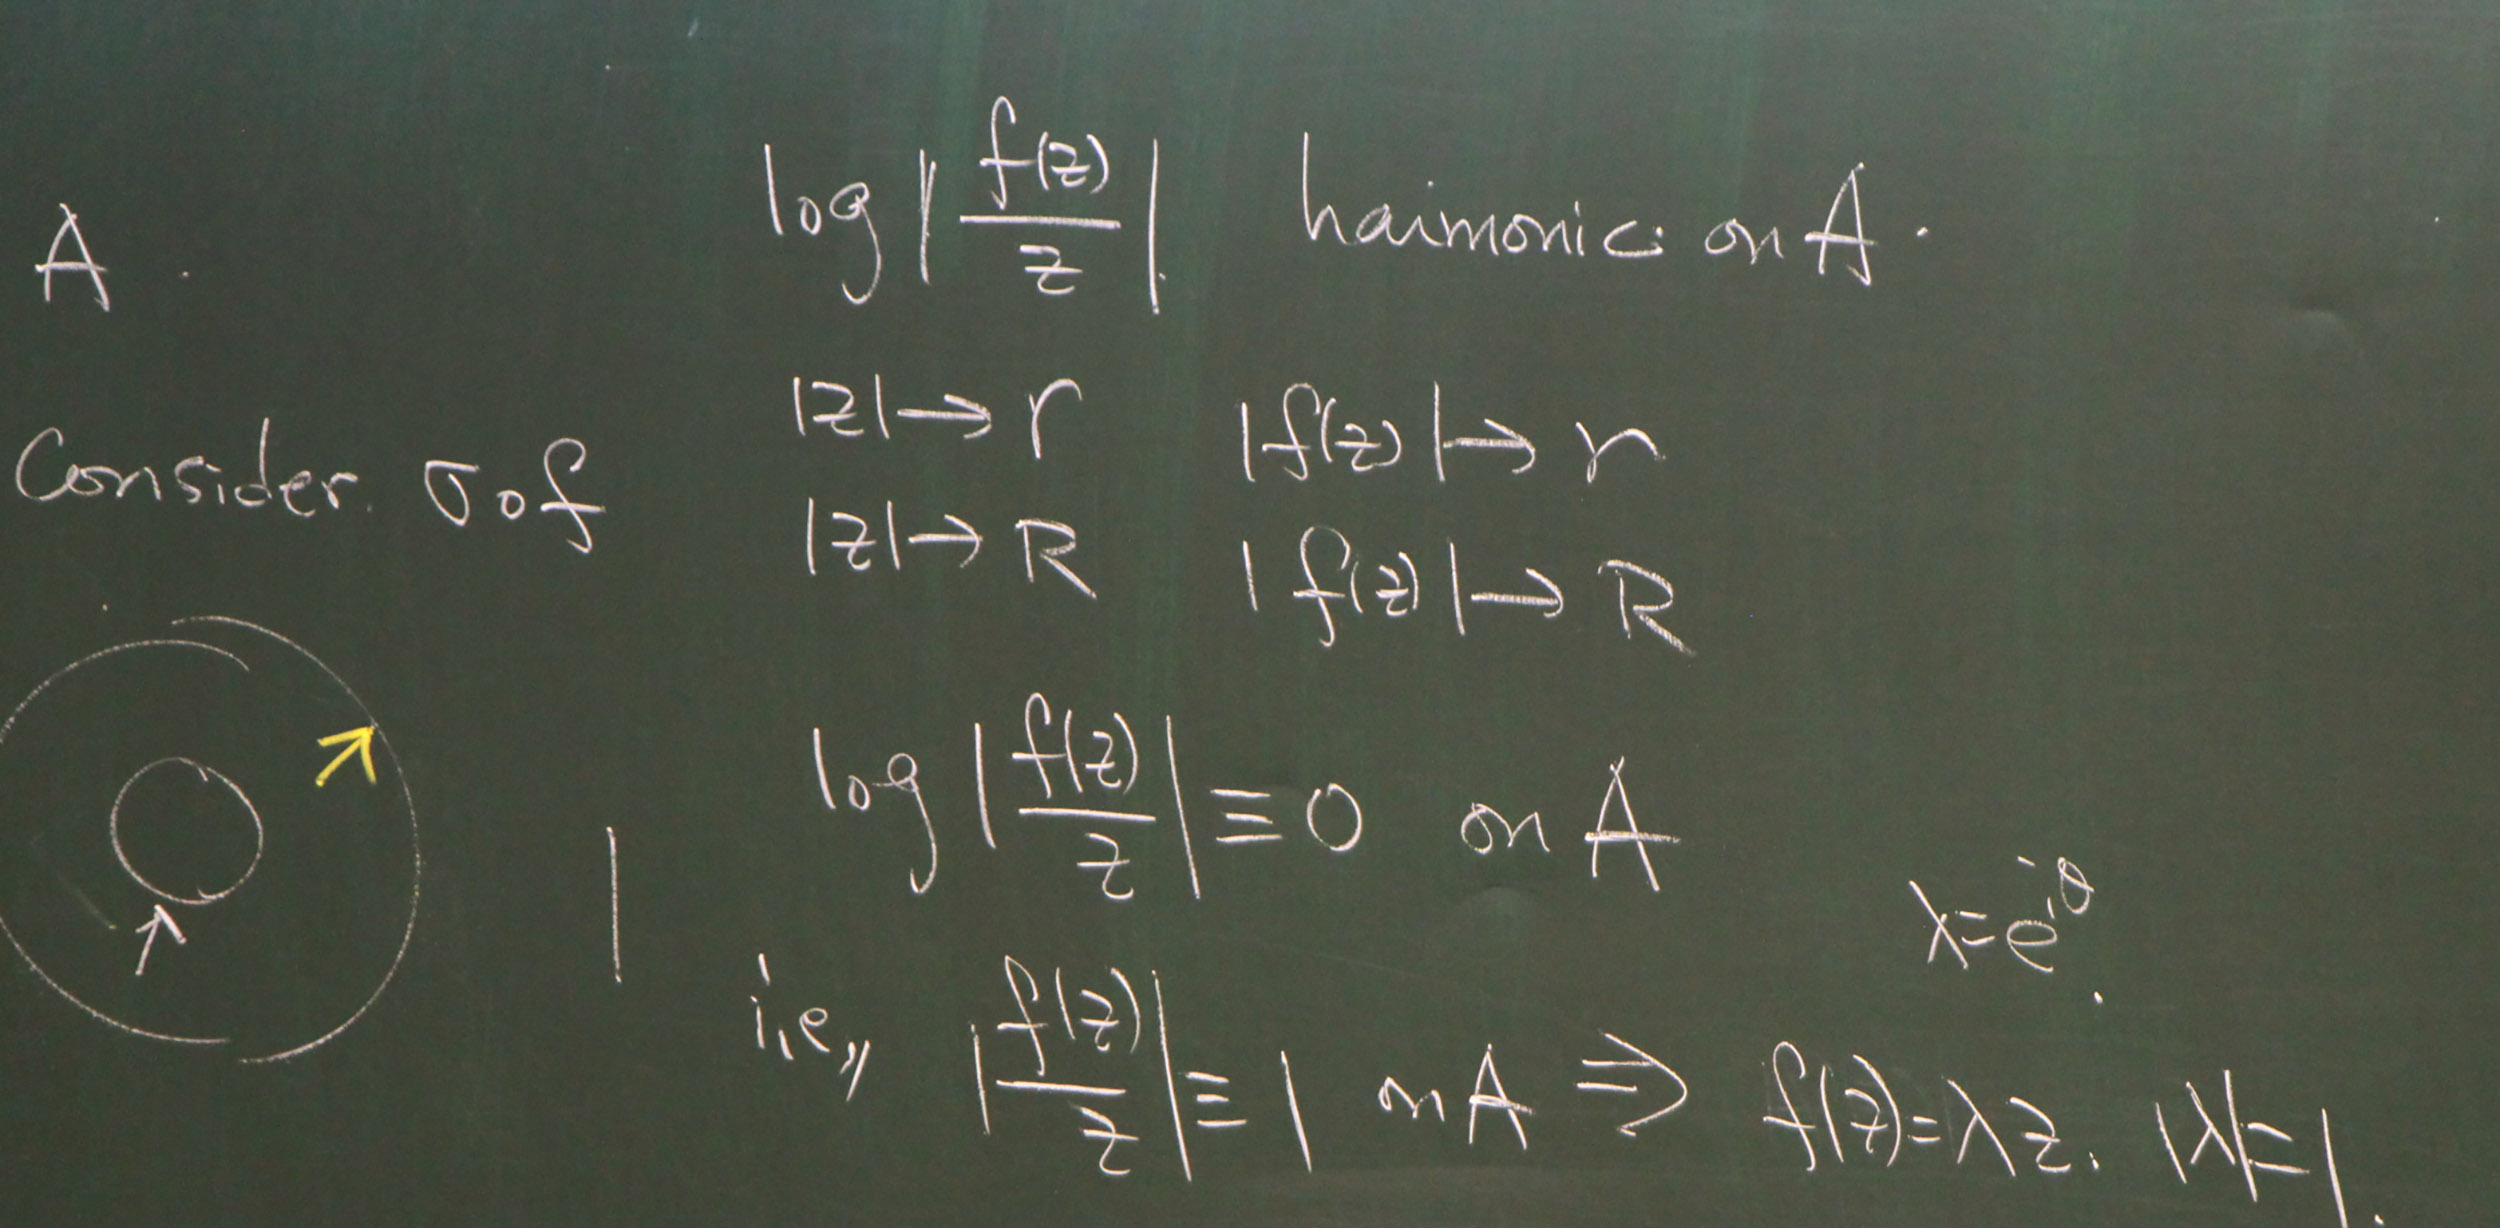 A.
Consider σ∘f
log |f(z)/z| harmonic on A.
|z| → r |f(z)| → r
|z| → R |f(z)| → R
log |f(z)/z| ≡ 0 on A
λ = e^{iθ}.
i.e., |f(z)/z| ≡ 1 on A ⇒ f(z) = λz. |λ| = 1.